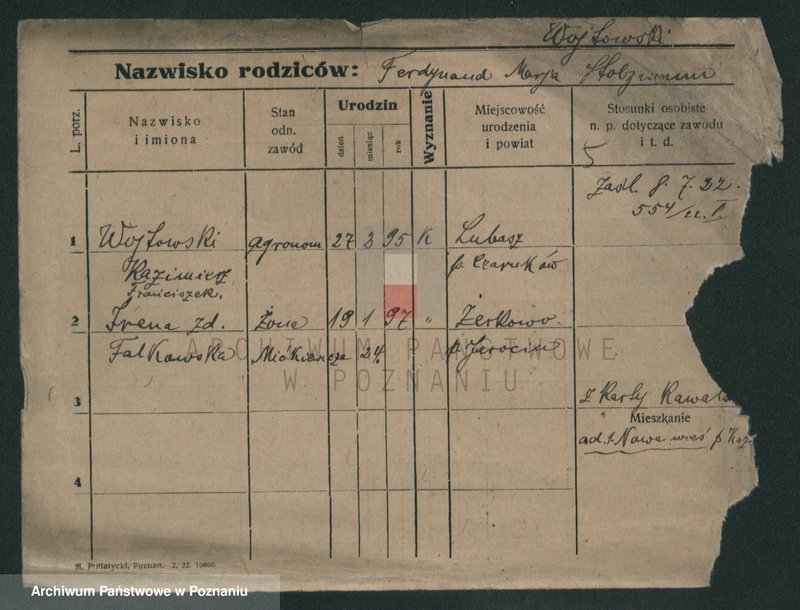 Wojtowski
Nazwisko rodziców: Ferdynand Marja
L. porz.
Nazwisko
i imiona
Stan
odn.
zawód
Urodzin
dzień
miesiąc
rok
Wyznanie
Miejscowość
urodzenia
i powiat
Stosunki osobiste
n. p. dotyczące zawodu
i t. d.
5
Zaśl. 8. 7. 22.
554/22. I.
1 Wojtowski agronom 27 2 95 K Lubasz
Kazimierz p. Czarnków
Franciszek
2 Irena zd. Żona 19 1 97 " Żerkowo
Falkowska 24 p. Jarocin
ARCHIWUM PAŃSTWOWE
W POZNANIU
z Karty
3
Mieszkanie
Nowa wieś p.
4
M. Putiatycki, Poznań. 2. 22. 10000
Archiwum Państwowe w Poznaniu